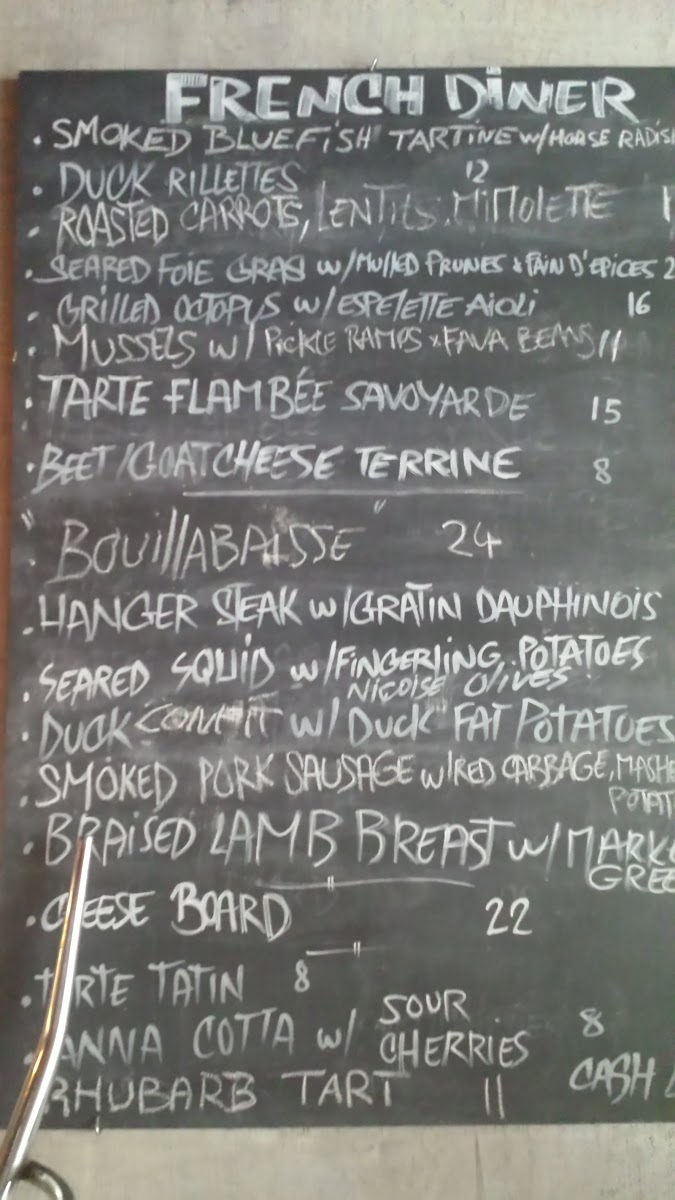 FRENCH DINER
• SMOKED BLUEFISH TARTINE w/HORSE RADIS
• DUCK RILLETTES 12
• ROASTED CARROTS, LENTILS, MIMOLETTE 1
• SEARED FOIE GRAS w/MULLED PRUNES & PAIN D'EPICES 2
• GRILLED OCTOPUS w/ESPELETTE AIOLI 16
• MUSSELS w/ PICKLE RAMPS & FAVA BEANS 11
• TARTE FLAMBÉE SAVOYARDE 15
• BEET/GOATCHEESE TERRINE 8
"BOUILLABAISSE" 24
• HANGER STEAK w/GRATIN DAUPHINOIS
• SEARED SQUID w/FINGERLING POTATOES
NIÇOISE OLIVES
• DUCK CONFIT w/DUCK FAT POTATOES
• SMOKED PORK SAUSAGE w/RED CABBAGE, MASHE
POTAT
• BRAISED LAMB BREAST w/MARK
GREE
• CHEESE BOARD 22
• TARTE TATIN 8
• ANNA COTTA w/ SOUR CHERRIES 8
RHUBARB TART 11
CASH